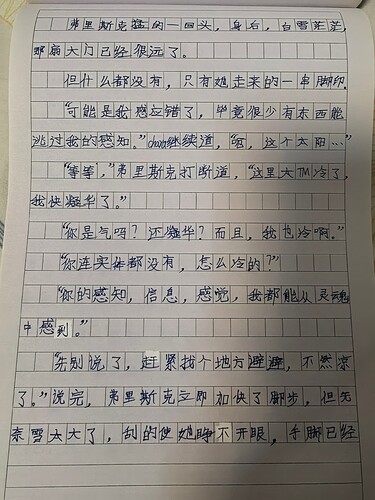 弗里斯克猛的一回头，身后，白雪茫茫，
那扇大门已经很远了。
但什么都没有，只有她走来的一串脚印。
“可能是我感应错了，毕竟很少有东西能
逃过我的感知。”chara继续道，“呵，这个太阳…”
“等等，”弗里斯克打断道，“这里太TM冷了，
我快凝华了。”
“你是气吗？还凝华？而且，我也冷啊。”
“你连实体都没有，怎么冷的？”
“你的感知，信息，感觉，我都能从灵魂
中感到。”
“先别说了，赶紧找个地方避避，不然凉
了。”说完，弗里斯克立即加快了脚步，但无
奈雪太大了，刮的使她睁不开眼，手脚已经